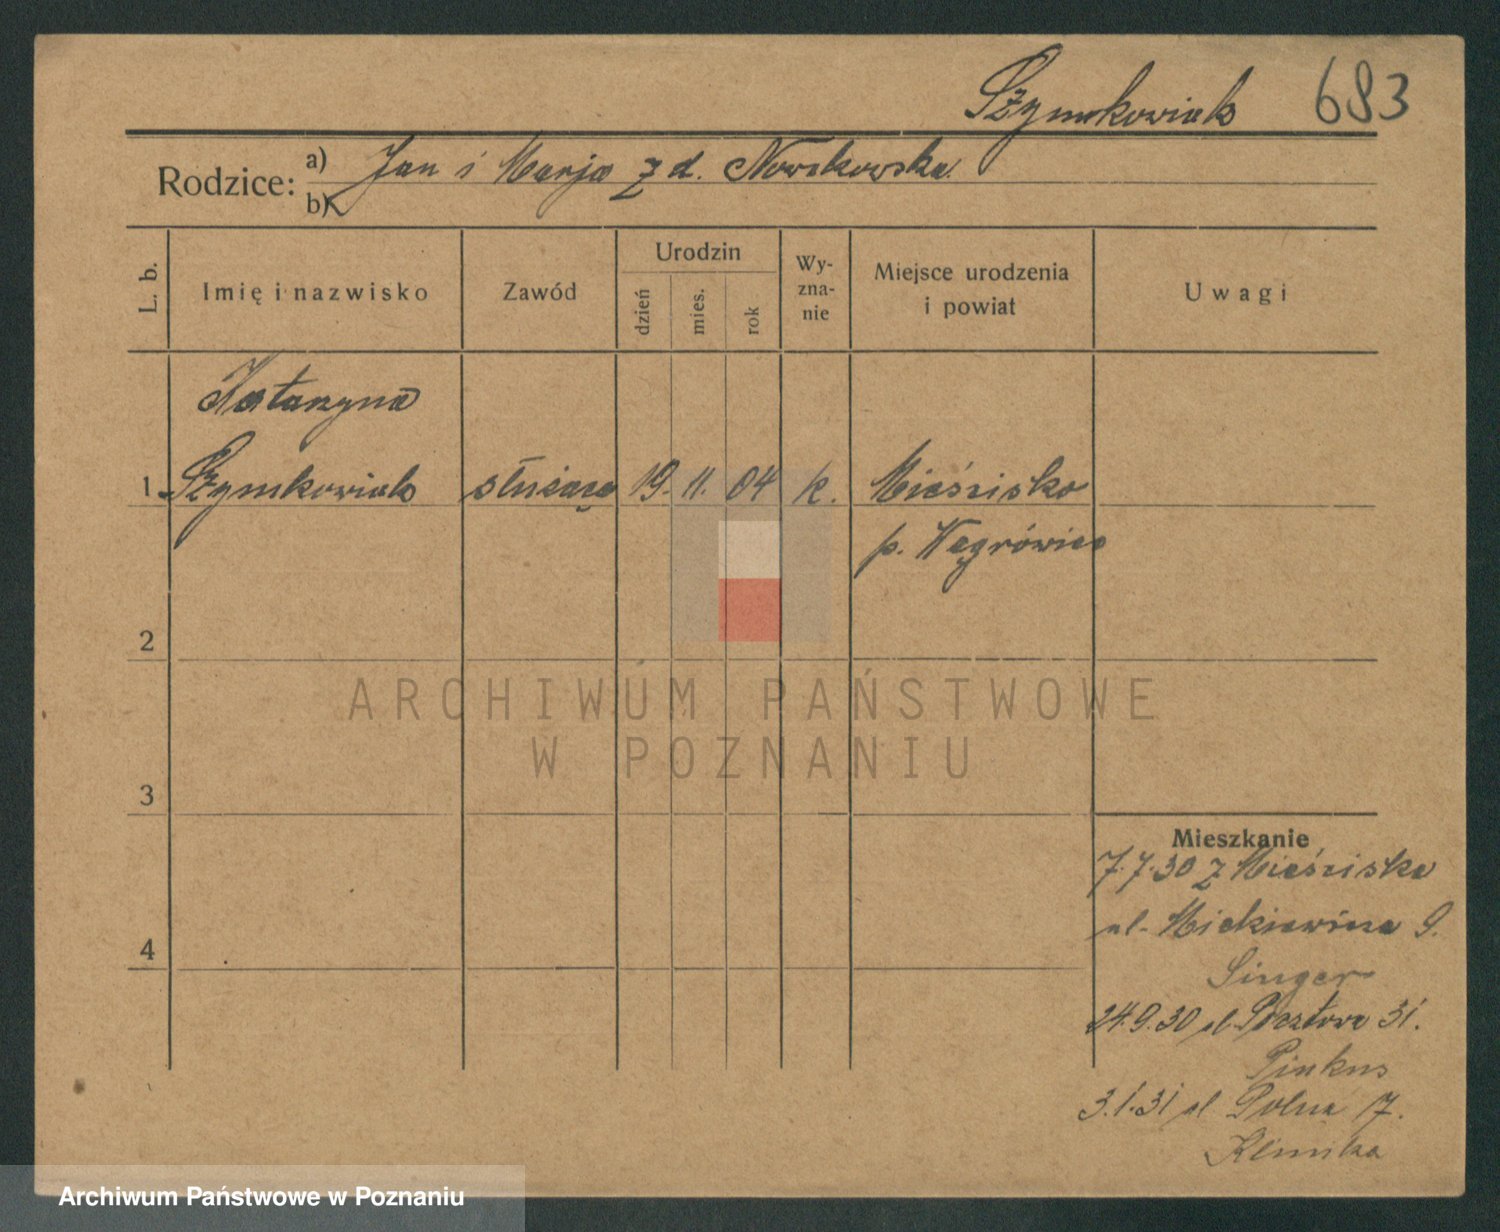 Szymkowiak 683
Rodzice: a) Jan i Marja z d. Nowakowska
b)
L. b.
Imię i nazwisko
Zawód
Urodzin
dzień
mies.
rok
Wy-
zna-
nie
Miejsce urodzenia
i powiat
Uwagi
Katarzyna
1 Szymkowiak służąca 19. 11. 04 k. Mieścisko
p. Wągrówiec
2
3
4
Mieszkanie
7.7.30 z Mieściska
ul. Mickiewicza 9.
Singer
24.9.30 ul. Pocztowa 31.
Pinkus
3.1.31 ul Polna 17.
ARCHIWUM PAŃSTWOWE
W POZNANIU
Archiwum Państwowe w Poznaniu